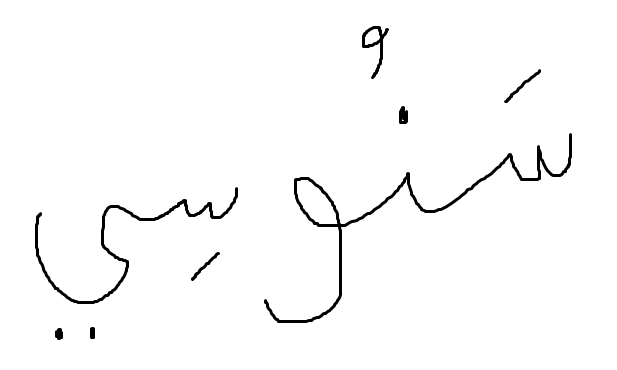 سَنُوسِي